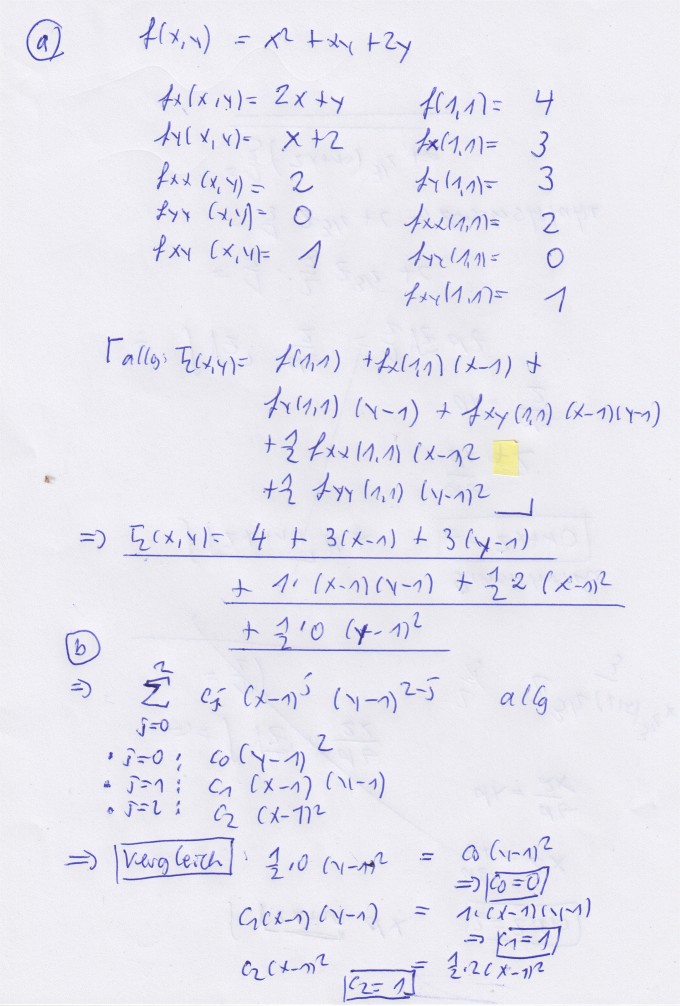 (a) f(x,y) = x² + xy + 2y
fx(x,y) = 2x+y f(1,1) = 4
fy(x,y) = x+2 fx(1,1) = 3
fxx(x,y) = 2 fy(1,1) = 3
fyy(x,y) = 0 fxx(1,1) = 2
fxy(x,y) = 1 fyy(1,1) = 0
fxy(1,1) = 1
⌈allg: T₂(x,y) = f(1,1) + fx(1,1) (x-1) +
fy(1,1) (y-1) + fxy(1,1) (x-1)(y-1)
+ ½ fxx(1,1) (x-1)²
+ ½ fyy(1,1) (y-1)² ⌋
=> T₂(x,y) = 4 + 3(x-1) + 3(y-1)
+ 1· (x-1)(y-1) + ½·2 (x-1)²
+ ½·0 (y-1)²
(b)
=> 2∑j=0 cj (x-1)^j (y-1)^2-j allg
• j=0 : c0 (y-1)²
• j=1 : c1 (x-1) (y-1)
• j=2 : c2 (x-1)²
=> Vergleich : ½·0 (y-1)² = c0 (y-1)²
=> c0=0
c1(x-1)(y-1) = 1·(x-1)(y-1)
=> c1=1
c2(x-1)² = ½·2(x-1)²
c2=1